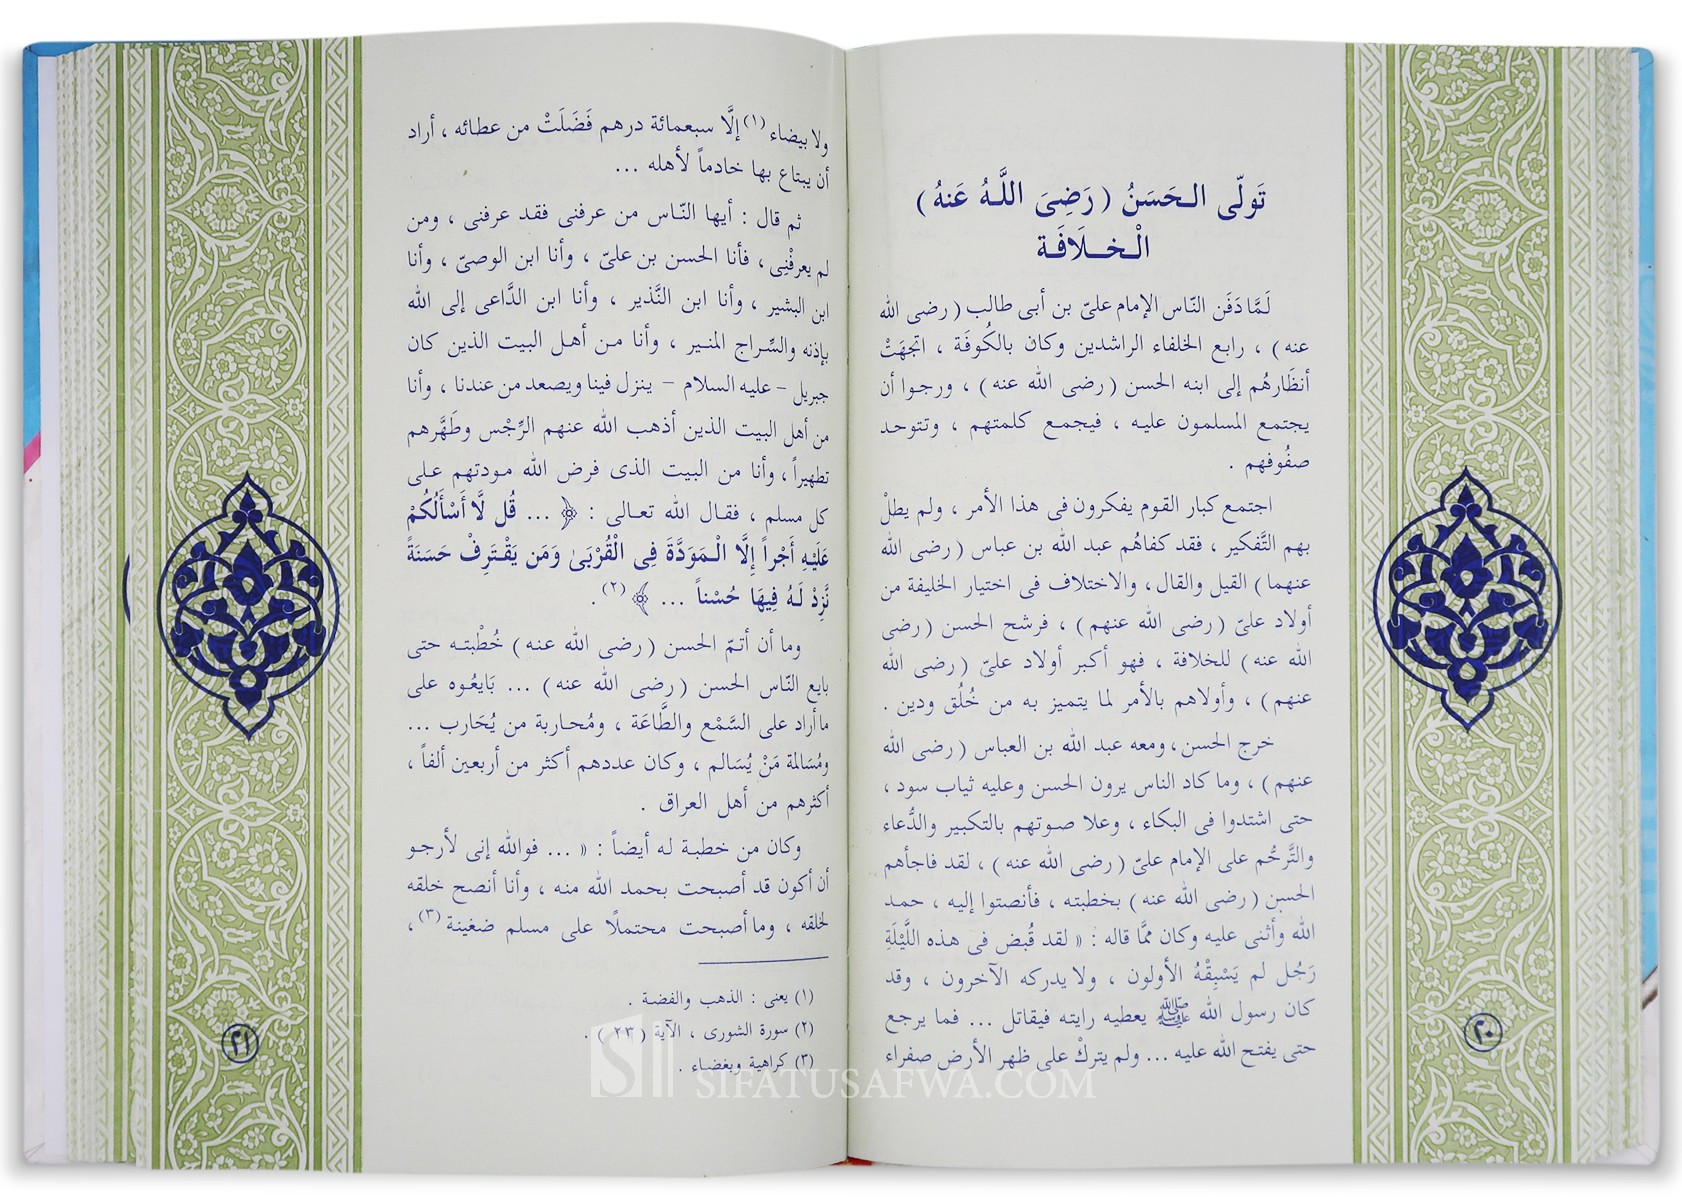 تَولّى الـحَسَنُ ( رَضِىَ اللَّهُ عَنهُ )
الْـخـلَافَـة
لَمَّا دَفَن النّاس الإمام علىّ بن أبى طالب ( رضى الله
عنه ) ، رابع الخلفاء الراشدين وكان بالكُوفَة ، اتجهَتْ
أنظَارهُم إلى ابنه الحسن ( رضى الله عنه ) ، ورجـوا أن
يجتمع المسلمون عليه ، فيجمـع كلمتهم ، وتتوحـد
صفُوفهم .
اجتمع كبار القوم يفكرون فى هذا الأمر ، ولم يطلْ
بهم التَّفكير ، فقد كفاهُم عبد الله بن عباس ( رضى الله
عنهما ) القيل والقال ، والاختلاف فى اختيار الخليفة من
أولاد علىّ ( رضى الله عنهم ) ، فرشح الحسن ( رضى
الله عنه ) للخلافة ، فهو أكبر أولاد علىّ ( رضى الله
عنهم ) ، وأولاهم بالأمر لما يتميز به من خُلُق ودين .
خرج الحسن ، ومعه عبد الله بن العباس ( رضى الله
عنهم ) ، وما كاد الناس يرون الحسن وعليه ثياب سود ،
حتى اشتدوا فى البكاء ، وعلا صوتهم بالتكبير والدُّعاء
والتَّرحُّم على الإمام علىّ ( رضى الله عنه ) ، لقد فاجأهم
الحسن ( رضى الله عنه ) بخطبته ، فأنصتوا إليه ، حمـد
الله وأثنى عليه وكان ممَّا قاله : « لقد قُبض فى هذه اللَّيْلَةِ
رَجُل لم يَسْبِقْهُ الأولون ، ولا يدركه الآخرون ، وقد
كان رسول الله ﷺ يعطيه رايته فيقاتل ... فما يرجع
حتى يفتح الله عليه ... ولم يتركْ على ظهر الأرض صفراء
٢٠
ولا بيضاء (١) إلَّا سبعمائة درهم فَضَلَتْ من عطائه ، أراد
أن يبتاع بها خادماً لأهله ...
ثم قال : أيها النّاس من عرفنى فقد عرفنى ، ومن
لم يعرفْنِى ، فأنا الحسن بن علىّ ، وأنا ابن الوصىّ ، وأنا
ابن البشير ، وأنا ابن النَّذير ، وأنا ابن الدَّاعى إلى الله
بإذنه والسِّراج المنـير ، وأنا مـن أهـل البيت الذين كان
جبريل - عليه السلام - ينزل فينا ويصعد من عندنا ، وأنا
من أهل البيت الذين أذهب الله عنهم الرِّجْس وطَهَّرهم
تطهيراً ، وأنا من البـيت الذى فرض الله مـودتهم علـى
كل مسلم ، فقـال الله تعـالى : ﴿ ... قُل لَّا أَسْأَلُكُمْ
عَلَيْهِ أَجْراً إِلَّا الْـمَوَدَّةَ فِى الْقُرْبَىٰ وَمَن يَقْـتَرِفْ حَسَنَةً
نَّزِدْ لَـهُ فِيهَا حُسْناً ... ﴾ (٢) .
وما أن أتـمّ الحسن ( رضى الله عنـه ) خُطْبتـه حتى
بايع النّاس الحسن ( رضى الله عنه ) ... بَايعُـوه على
ما أراد على السَّمْع والطَّاعَة ، ومُحـاربة من يُحَارب ...
ومُسَالمة مَنْ يُسَالم ، وكان عددهم أكثر من أربعين ألفاً ،
أكثرهم من أهل العراق .
وكان من خطبـة لـه أيضاً : « ... فوالله إنى لأرجـو
أن أكون قد أصبحت بحمد الله منه ، وأنا أنصح خلقه
لخلقه ، وما أصبحت محتملًا على مسلم ضغينة (٣) ،
(١) يعنى : الذهب والفضة .
(٢) سورة الشورى ، الآية ( ٢٣ ) .
(٣) كراهية وبغضاء .
٢١
SIFATUSAFWA.COM